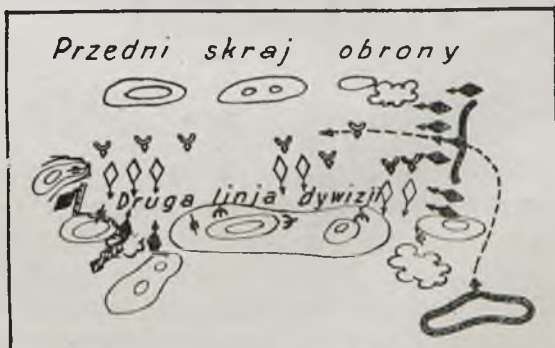 Przedni skraj obrony
Druga linja dywizji